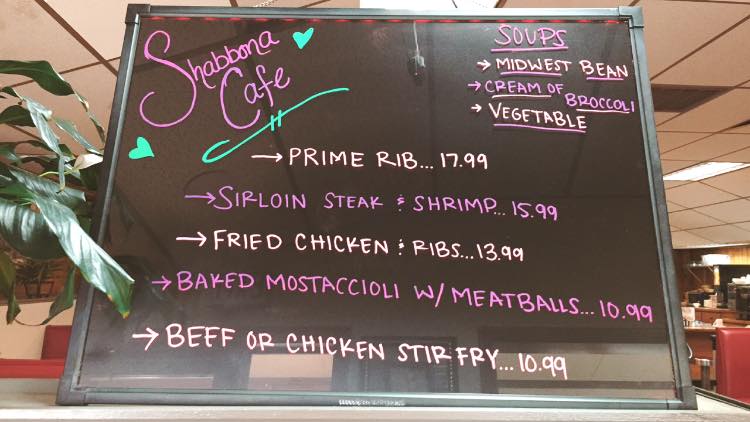 Shabbona
Cafe
SOUPS
→ MIDWEST BEAN
→ CREAM OF
BROCCOLI
→ VEGETABLE
→ PRIME RIB... 17.99
→ SIRLOIN STEAK & SHRIMP... 15.99
→ FRIED CHICKEN & RIBS... 13.99
→ BAKED MOSTACCIOLI W/ MEATBALLS... 10.99
→ BEEF OR CHICKEN STIR FRY... 10.99